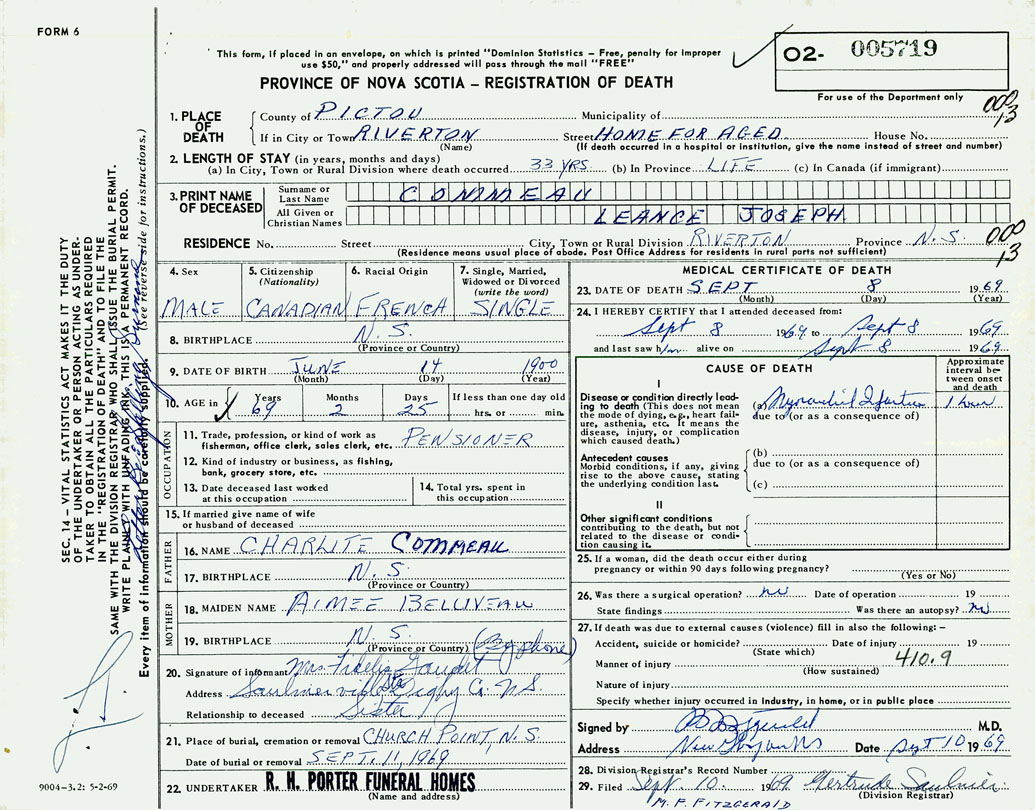 FORM 6
This form, if placed in an envelope, on which is printed "Dominion Statistics – Free, penalty for improper
use $50," and properly addressed will pass through the mail "FREE"
PROVINCE OF NOVA SCOTIA – REGISTRATION OF DEATH
02- 005719
For use of the Department only
000
13
1. PLACE OF DEATH
County of PICTOU Municipality of
If in City or Town RIVERTON Street HOME FOR AGED House No.
(Name) (If death occurred in a hospital or institution, give the name instead of street and number)
2. LENGTH OF STAY (in years, months and days)
(a) In City, Town or Rural Division where death occurred 33 YRS. (b) In Province LIFE (c) In Canada (if immigrant)
3. PRINT NAME OF DECEASED
Surname or Last Name COMMEAU
All Given or Christian Names LEANCE JOSEPH
RESIDENCE No. Street City, Town or Rural Division RIVERTON Province N.S.
000
13
(Residence means usual place of abode. Post Office Address for residents in rural parts not sufficient)
4. Sex
MALE
5. Citizenship
(Nationality)
CANADIAN
6. Racial Origin
FRENCH
7. Single, Married,
Widowed or Divorced
(write the word)
SINGLE
8. BIRTHPLACE N.S.
(Province or Country)
9. DATE OF BIRTH JUNE 14 1900
(Month) (Day) (Year)
10. AGE in Years Months Days If less than one day old
69 2 25 hrs. or min.
OCCUPATION
11. Trade, profession, or kind of work as
fisherman, office clerk, sales clerk, etc. PENSIONER
12. Kind of industry or business, as fishing,
bank, grocery store, etc.
13. Date deceased last worked
at this occupation
14. Total yrs. spent in
this occupation
15. If married give name of wife
or husband of deceased
FATHER
16. NAME CHARLITE COMMEAU
17. BIRTHPLACE N.S.
(Province or Country)
MOTHER
18. MAIDEN NAME AIMEE BELLIVEAU
19. BIRTHPLACE N.S. (By phone)
(Province or Country)
20. Signature of informant Mrs. Fidelis Gaudet
Address Saulnierville Stn Digby Co. N.S.
Relationship to deceased Sister
21. Place of burial, cremation or removal CHURCH POINT, N.S.
Date of burial or removal SEPT. 11, 1969
22. UNDERTAKER R. H. PORTER FUNERAL HOMES
(Name and address)
MEDICAL CERTIFICATE OF DEATH
23. DATE OF DEATH SEPT 8 1969
(Month) (Day) (Year)
24. I HEREBY CERTIFY that I attended deceased from:
Sept 8 1969 to Sept 8 1969
and last saw him alive on Sept 8 1969
CAUSE OF DEATH
Approximate interval between onset and death
I
Disease or condition directly leading
to death (This does not mean
the mode of dying, e.g., heart failure,
asthenia, etc. It means the
disease, injury, or complication
which caused death.)
(a) Myocardial Infarction 1 hour
due to (or as a consequence of)
Antecedent causes
Morbid conditions, if any, giving
rise to the above cause, stating
the underlying condition last.
(b)
due to (or as a consequence of)
(c)
II
Other significant conditions
contributing to the death, but not
related to the disease or condition
causing it.
25. If a woman, did the death occur either during
pregnancy or within 90 days following pregnancy?
(Yes or No)
26. Was there a surgical operation? no Date of operation 19
State findings Was there an autopsy? no
27. If death was due to external causes (violence) fill in also the following: –
Accident, suicide or homicide? Date of injury 19
(State which)
Manner of injury 410.9
(How sustained)
Nature of injury
Specify whether injury occurred in Industry, in home, or in public place
Signed by M.D.
Address New Glasgow NS Date Sept 10 1969
28. Division Registrar's Record Number
29. Filed Sept. 10. 1969. Gertrude Saulnier
(Division Registrar)
M. F. FITZGERALD
SEC. 14 – VITAL STATISTICS ACT MAKES IT THE DUTY
OF THE UNDERTAKER OR PERSON ACTING AS UNDERTAKER
TO OBTAIN ALL THE PARTICULARS REQUIRED
IN THE "REGISTRATION OF DEATH" AND TO FILE THE
SAME WITH THE DIVISION REGISTRAR WHO SHALL ISSUE THE BURIAL PERMIT.
WRITE PLAINLY WITH UNFADING INK, THIS IS A PERMANENT RECORD.
Every item of information should be carefully supplied. (See reverse side for instructions.)
9004-3.2: 5-2-69